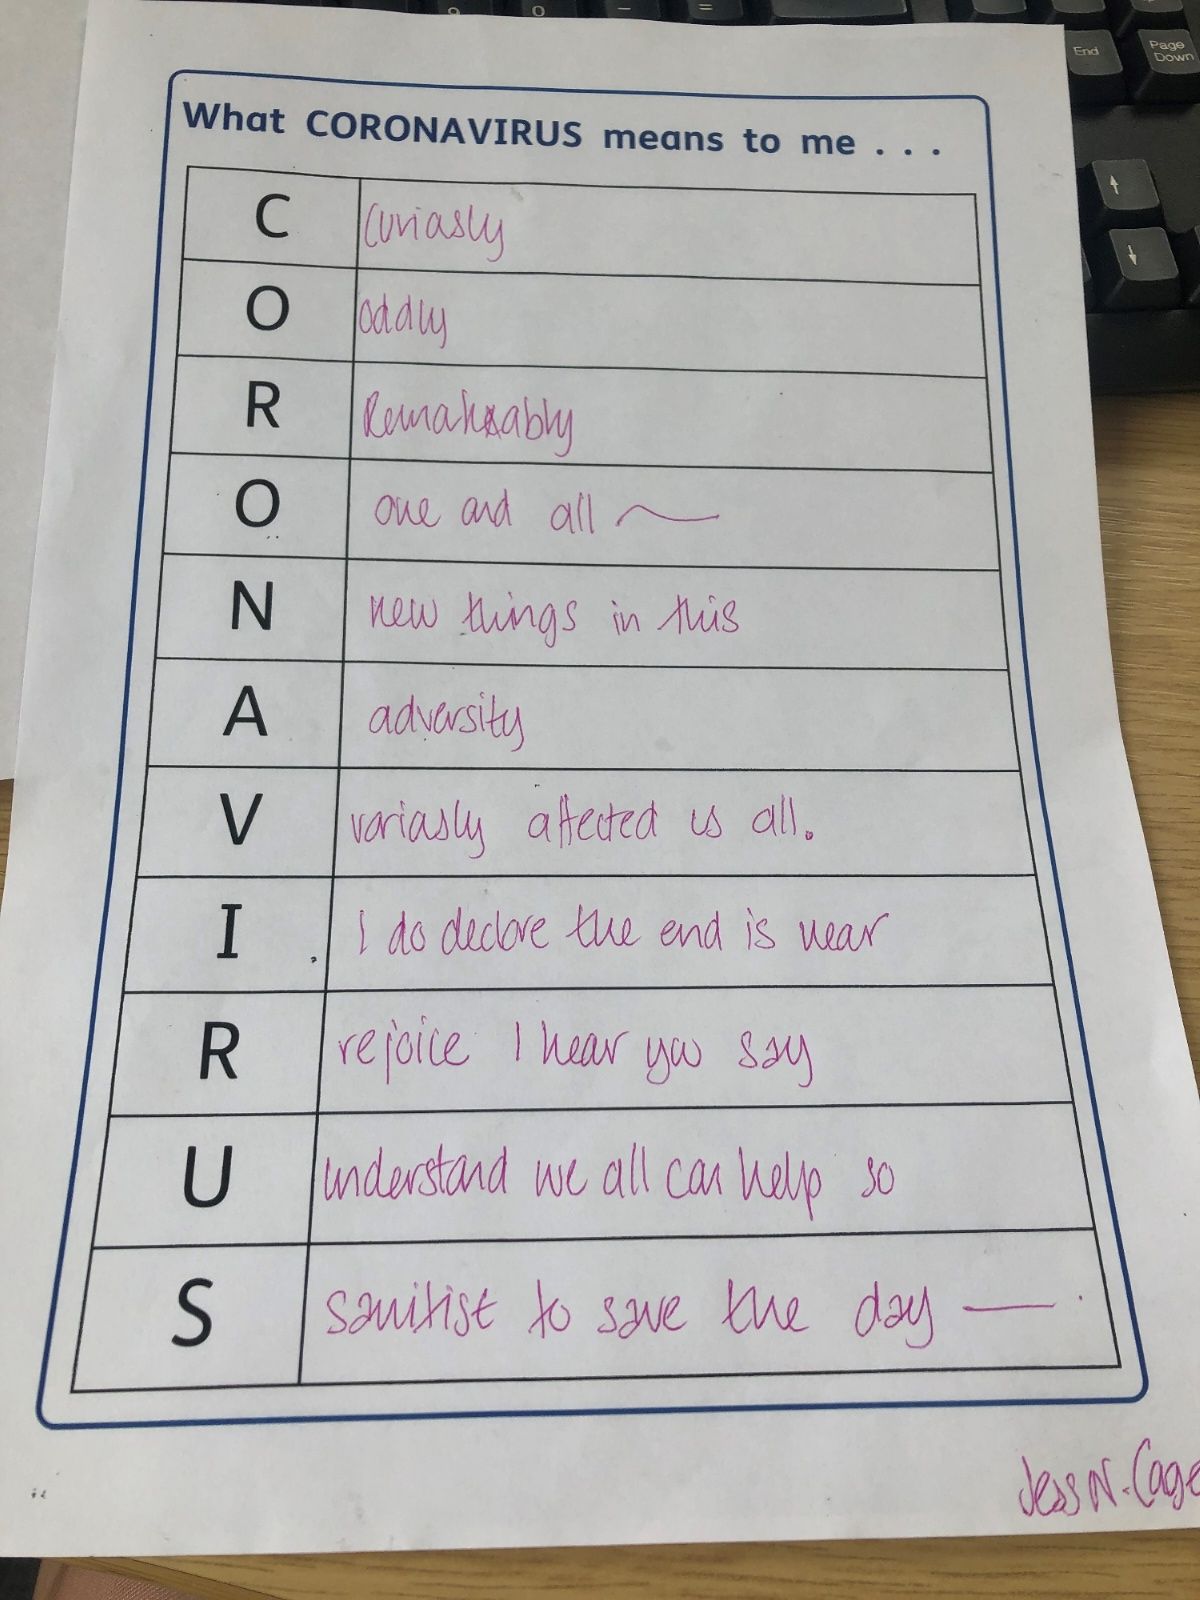 9 O – =
End
Page Down
↑
↓
What CORONAVIRUS means to me . . .
C curiasly
O oddly
R Remarkably
O one and all
N new things in this
A adversity
V variasly affected us all.
I I do declare the end is near
R rejoice I hear you say
U understand we all can help so
S sanitist to save the day —
Jess N. Cage